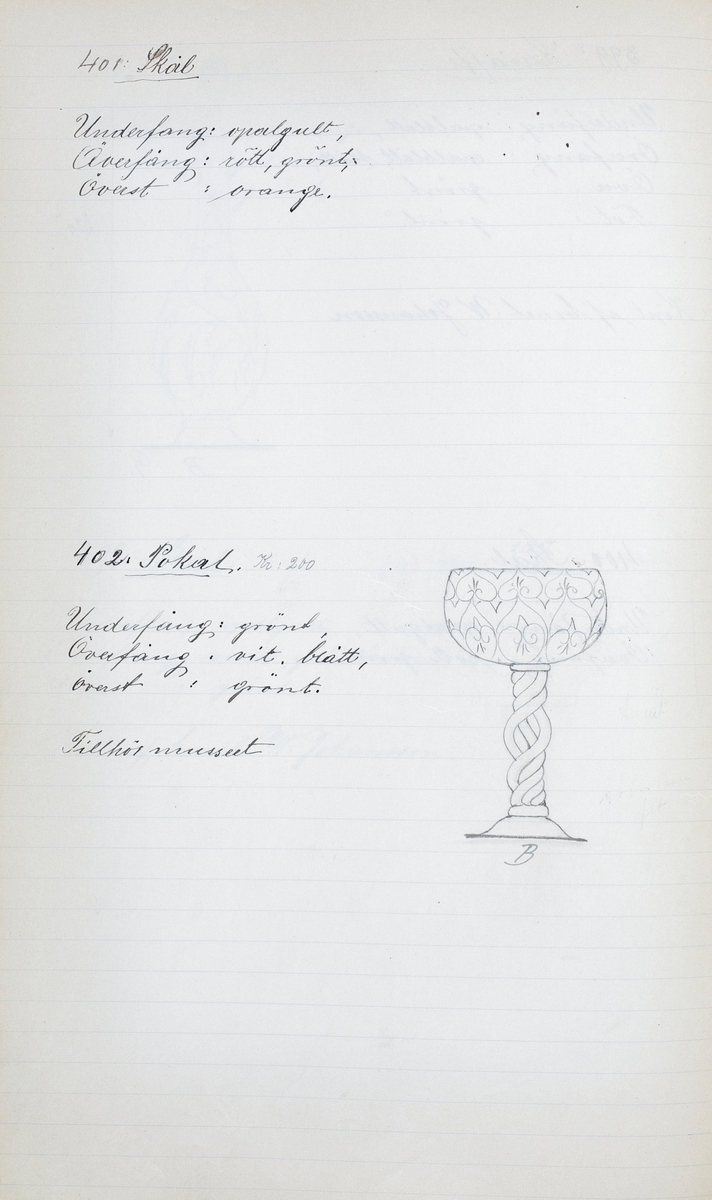 401: Skål
Underfang: opalgult,
Överfång: rött, grönt,
Överst : orange.
402: Pokal. Kr: 200
Underfång: grönt,
Överfång . vit. blått,
överst : grönt.
Tillhör musseet
B